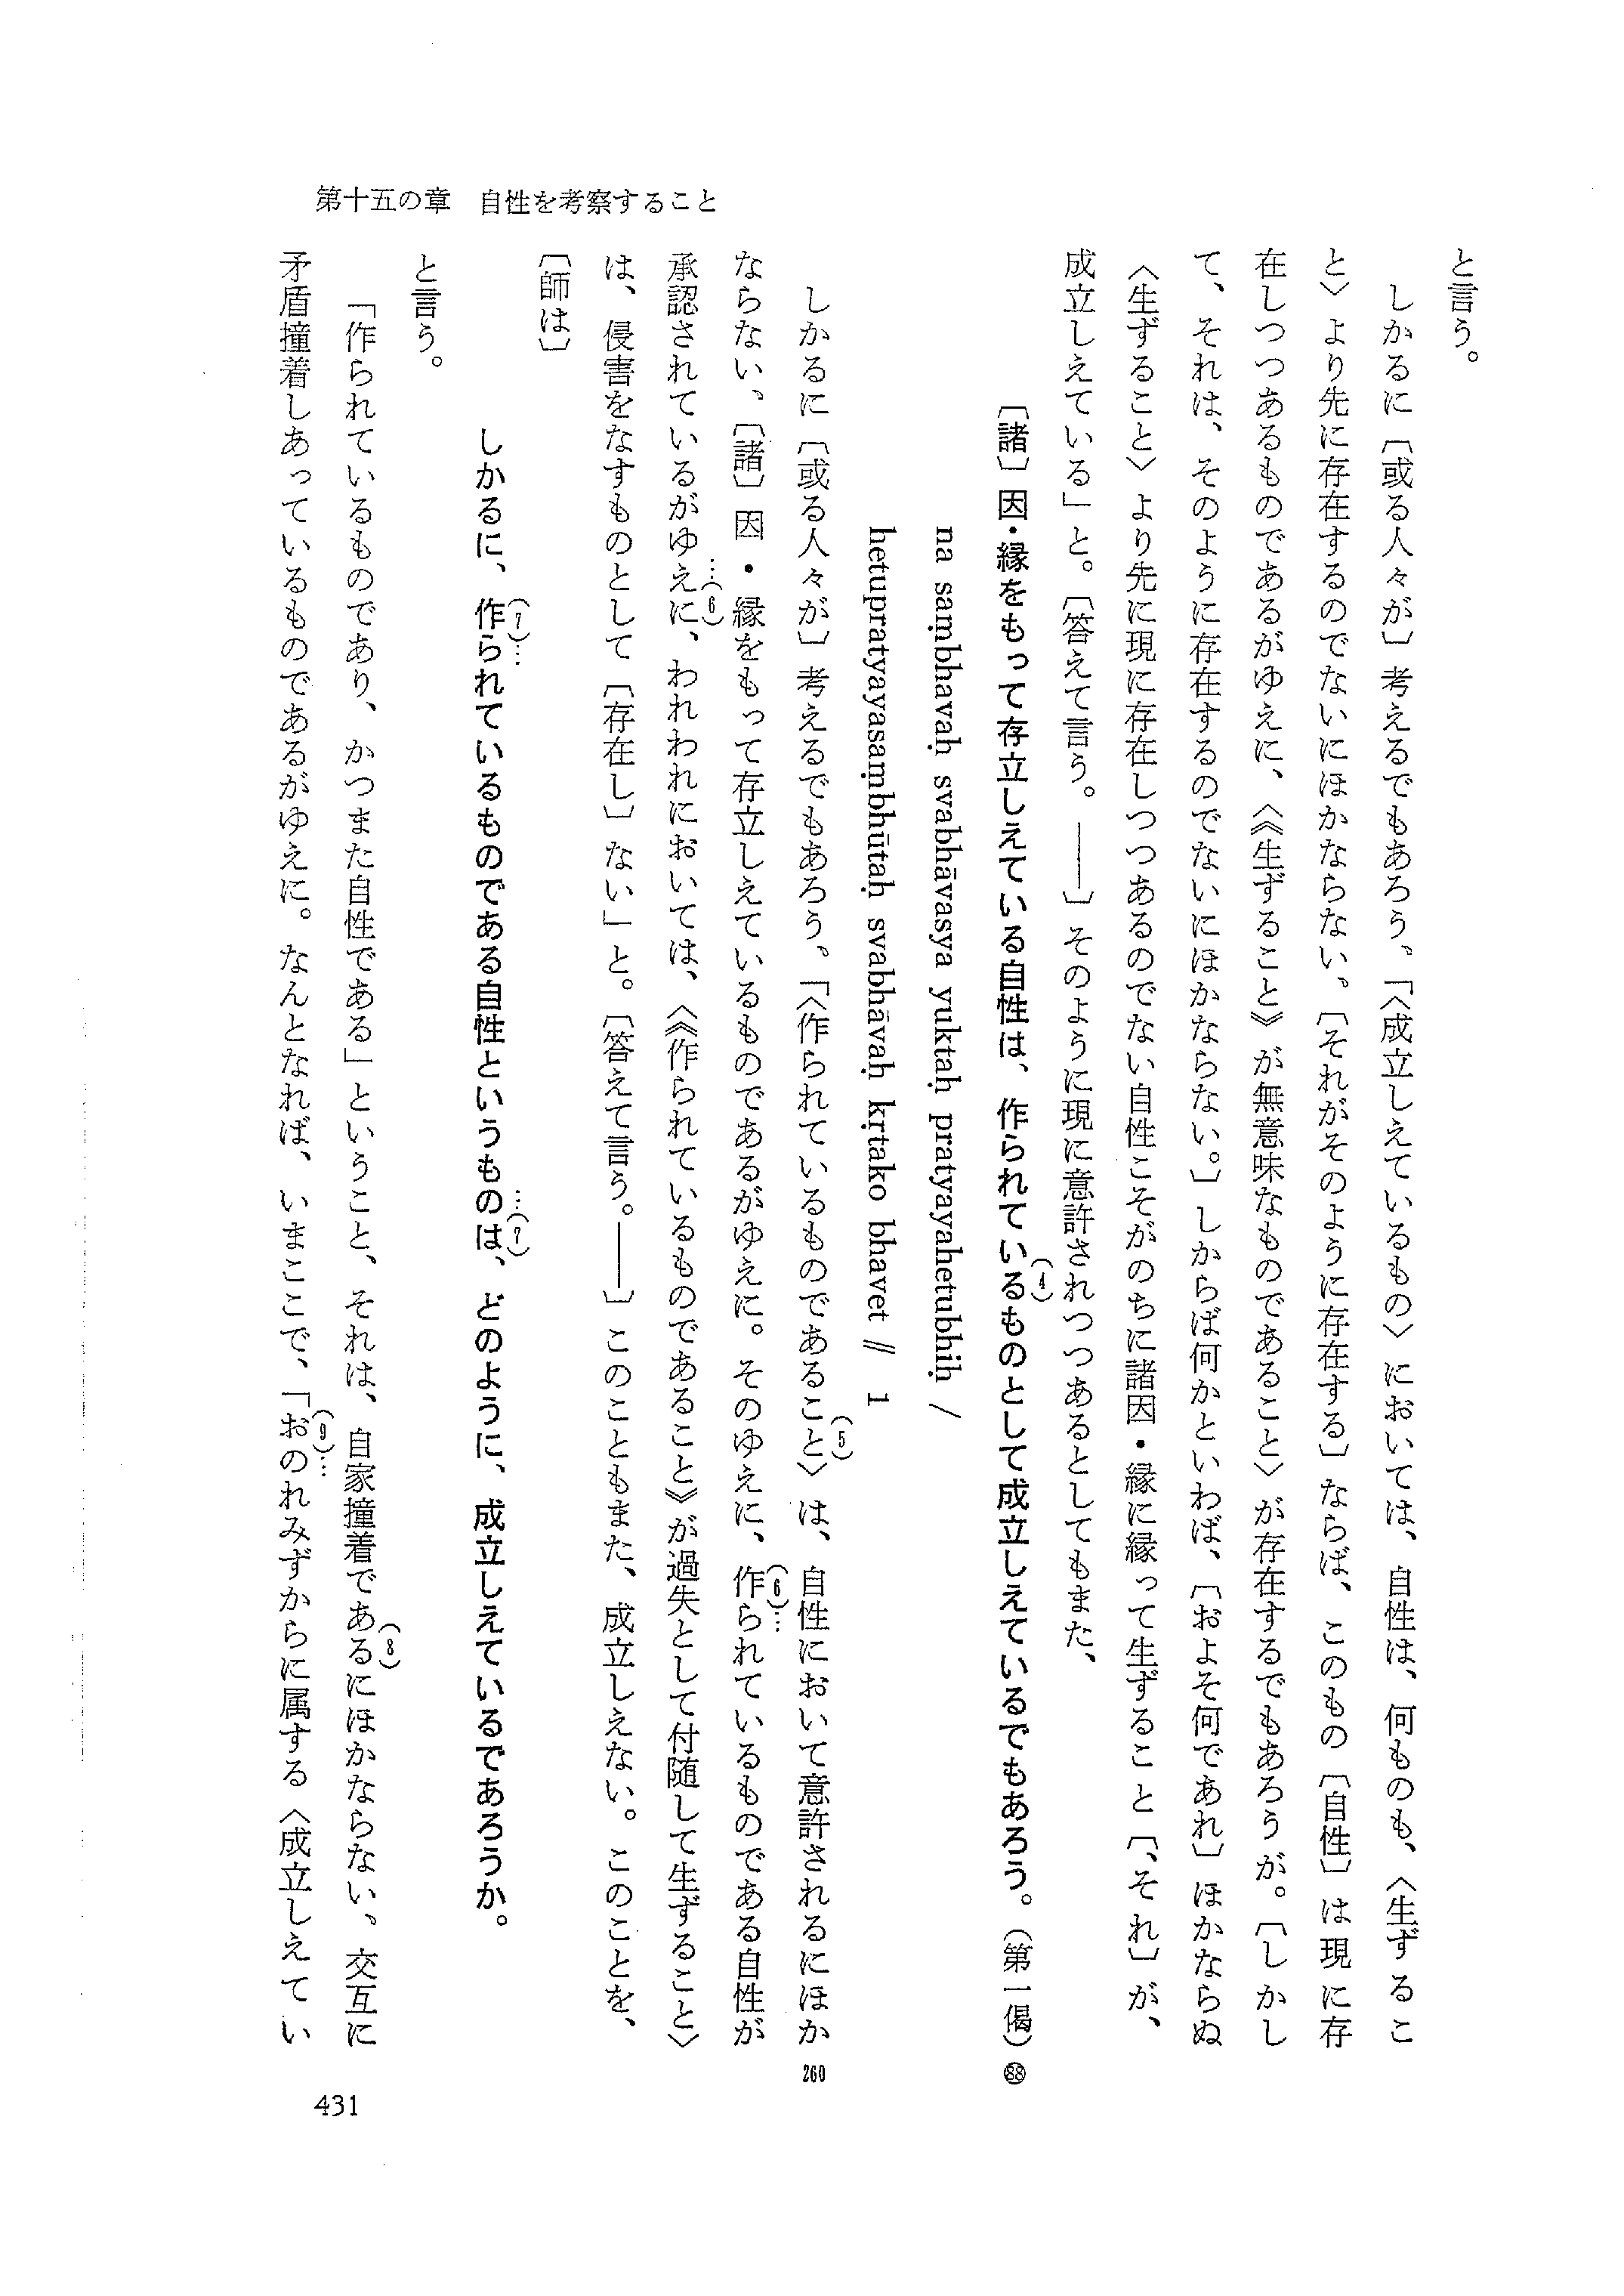 第十五の章　自性を考察すること
と言う。
　しかるに〔或る人々が〕考えるでもあろう、「〈成立しえているもの〉においては、自性は、何ものも、〈生ずるこ
と〉より先に存在するのでないにほかならない。〔それがそのように存在する〕ならば、このもの〔自性〕は現に存
在しつつあるものであるがゆえに、〈《生ずること》が無意味なものであること〉が存在するでもあろうが。〔しかし
て、それは、そのように存在するのでないにほかならない。〕しからば何かといわば、〔およそ何であれ〕ほかならぬ
〈生ずること〉より先に現に存在しつつあるのでない自性こそがのちに諸因・縁に縁って生ずること〔、それ〕が、
成立しえている」と。〔答えて言う。――〕そのように現に意許されつつあるとしてもまた、
〔諸〕因・縁をもって存立しえている自性は、作られているもの(4)として成立しえているでもあろう。(第一偈)㊳
na saṃbhavaḥ svabhāvasya yuktaḥ pratyayahetubhiḥ /
hetupratyayasaṃbhūtaḥ svabhāvaḥ kṛtako bhavet // 1
　しかるに〔或る人々が〕考えるでもあろう、「〈作られているものであること(5)〉は、自性において意許されるにほか 260
ならない、〔諸〕因・縁をもって存立しえているものであるがゆえに。そのゆえに、(6)…作られているものである自性が
承認されているがゆえに…(6)、われわれにおいては、〈《作られているものであること》が過失として付随して生ずること〉
は、侵害をなすものとして〔存在し〕ない」と。〔答えて言う。――〕このこともまた、成立しえない。このことを、
〔師は〕
しかるに、(7)…作られているものである自性というものは…(7)、どのように、成立しえているであろうか。
と言う。
　「作られているものであり、かつまた自性である」ということ、それは、自家撞着である(8)にほかならない、交互に
矛盾撞着しあっているものであるがゆえに。なんとなれば、いまここで、「(9)…おのれみずからに属する〈成立しえてい
431